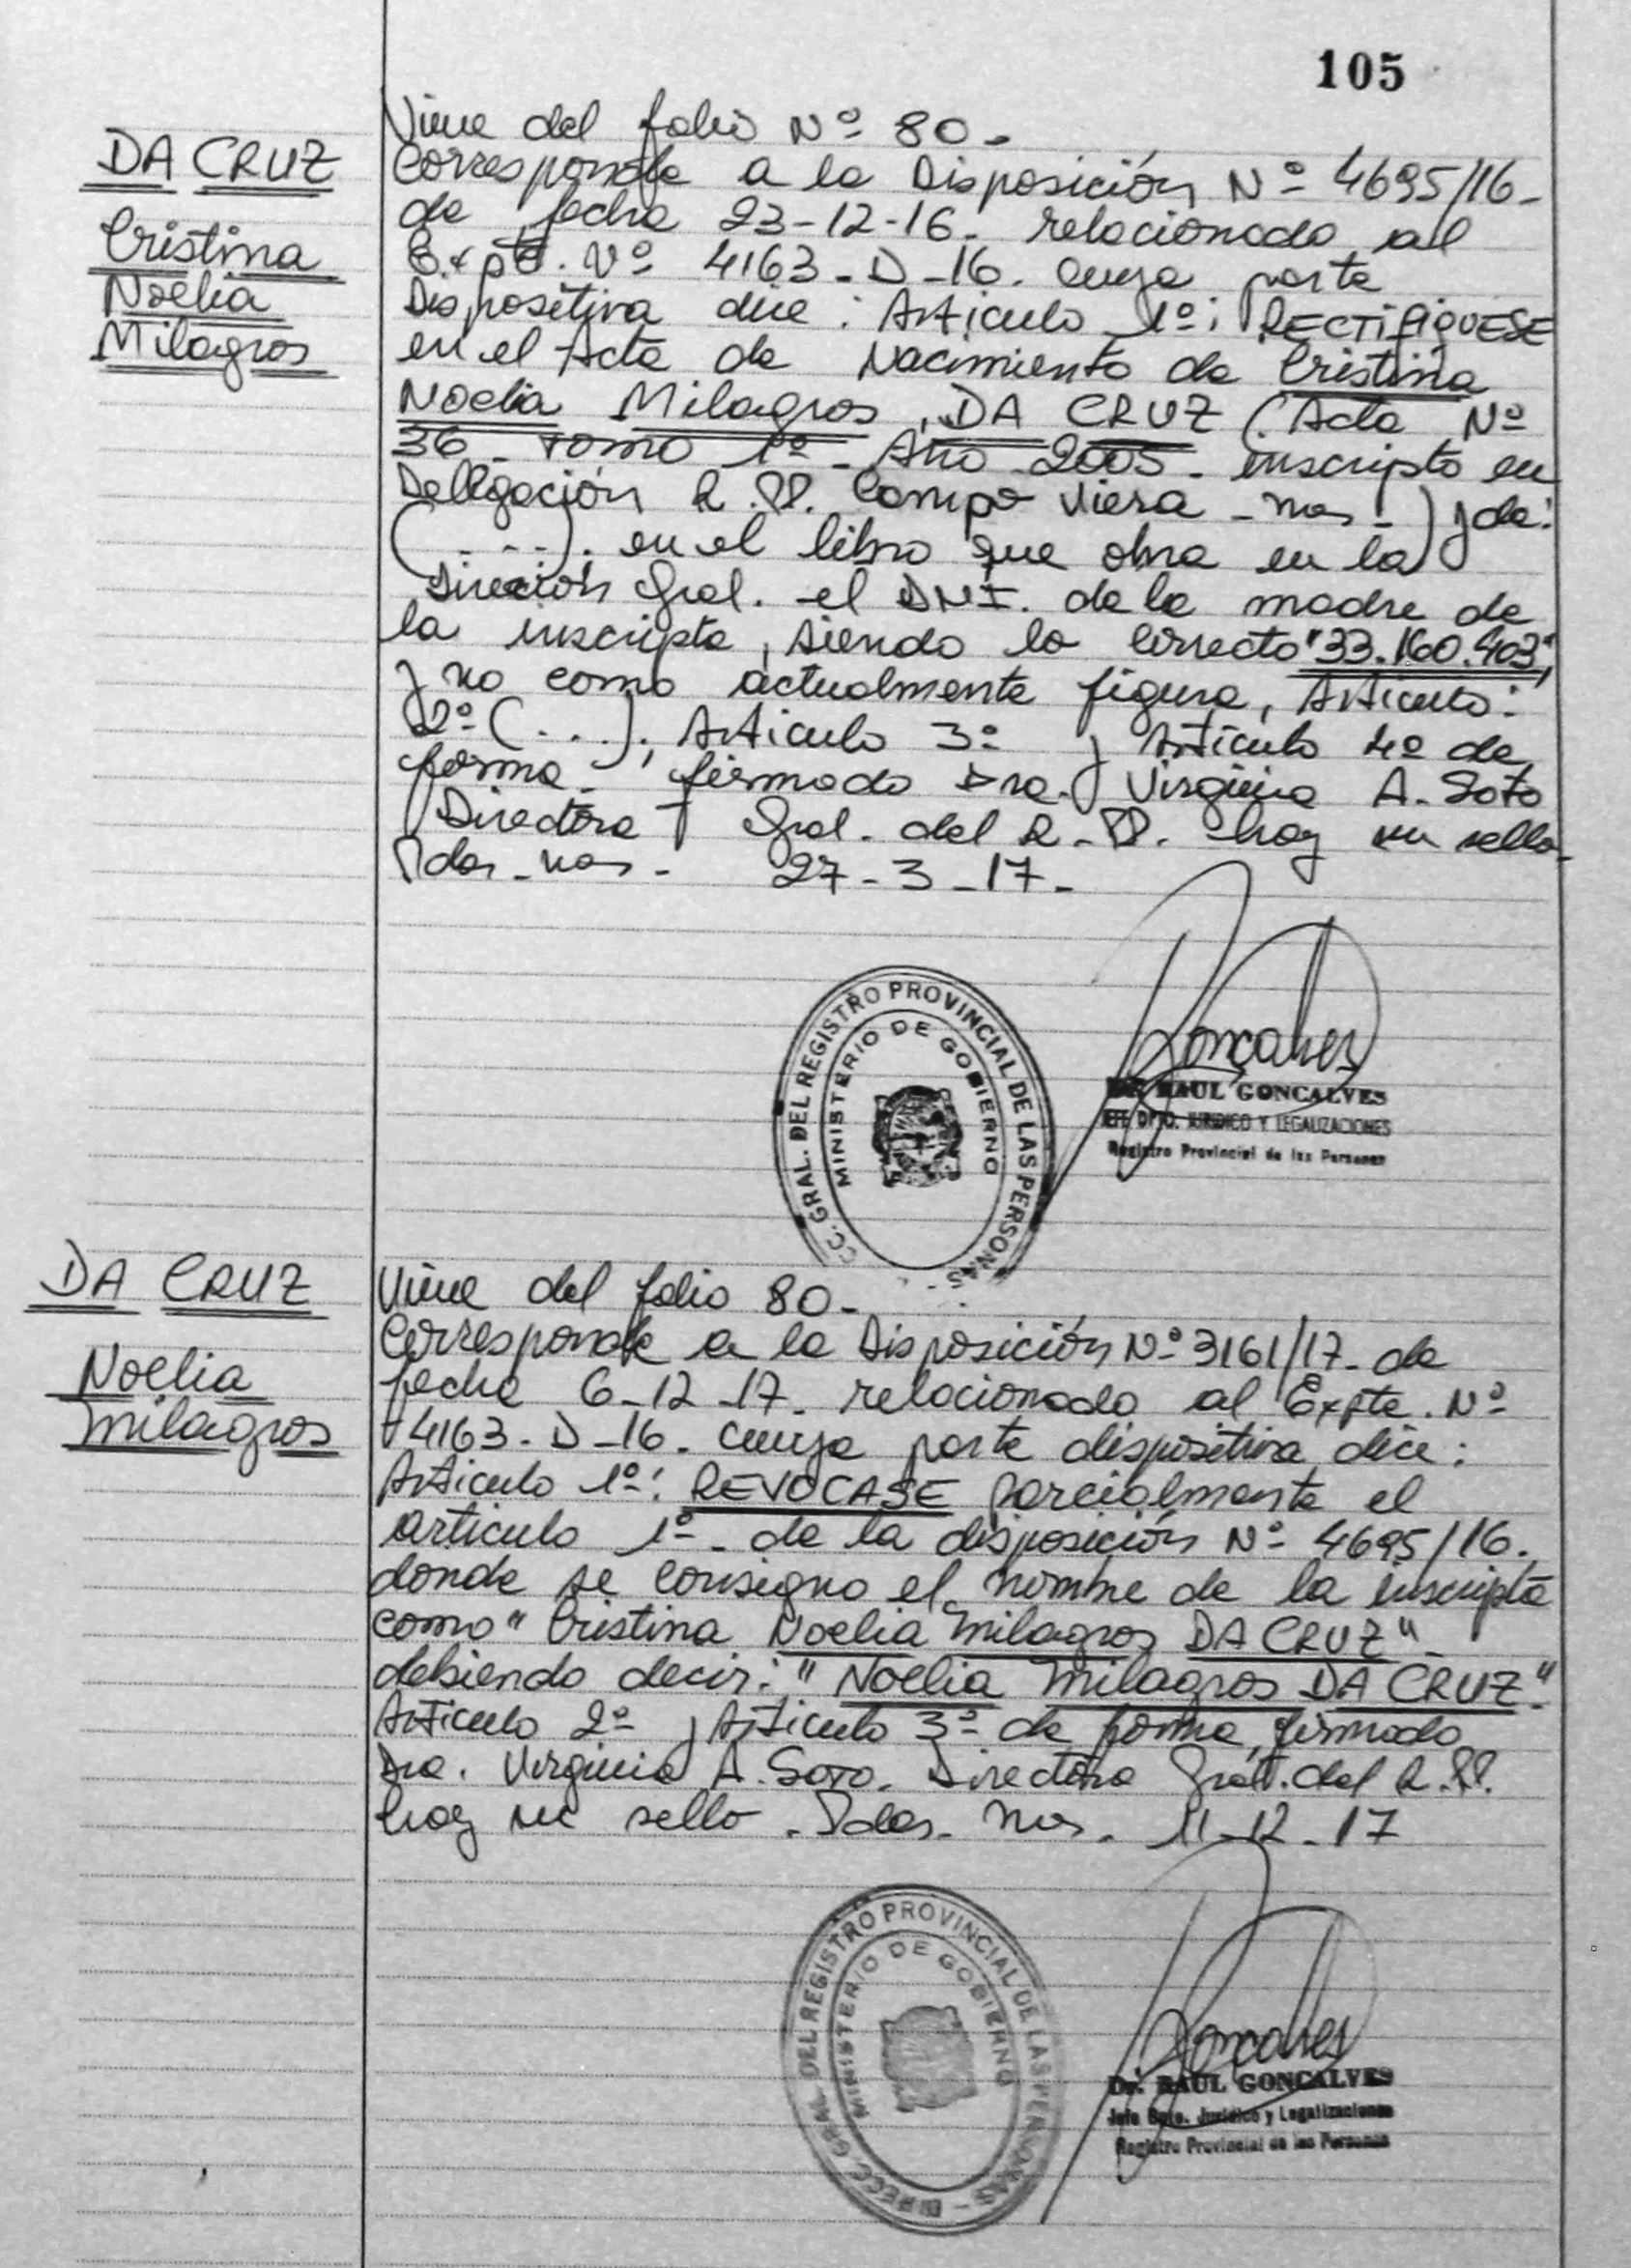 105
DA CRUZ
Cristina
Noelia
Milagros
Viene del folio Nº 80.-
Corresponde a la Disposición Nº 4695/16-
de fecha 23-12-16. relacionado al
Expte. Nº 4163-D-16. cuya parte
Dispositiva dice: Articulo 1º: RECTIFIQUESE
en el Acta de Nacimiento de Cristina
Noelia Milagros, DA CRUZ (Acta Nº
36- Tomo 1º- Año 2005- inscripto en
Delegación R.PP. Campo Viera -Mns-) y de:
(...). en el libro que obra en la
Dirección Gral. el DNI. de la madre de
la inscripta, siendo lo correcto "33.160.403",
y no como actualmente figura, Articulo:
2º (...), Articulo 3º y Articulo 4º de
forma- firmado Dra. Virginia A. Soto
Directora Gral. del R.PP. hay un sello-
Pdas-Mns- 27-3-17-
CC. GRAL. DEL REGISTRO PROVINCIAL DE LAS PERSONAS
MINISTERIO DE GOBIERNO
Goncalves
Dr. RAUL GONCALVES
JEFE DPTO. JURIDICO Y LEGALIZACIONES
Registro Provincial de las Personas
DA CRUZ
Noelia
Milagros
Viene del folio 80-
Corresponde a la Disposición Nº 3161/17- de
fecha 6-12-17. relacionado al Expte. Nº
4163-D-16. cuya parte dispositiva dice:
Articulo 1º: REVOCASE parcialmente el
articulo 1º- de la disposición Nº 4695/16.
donde se consigno el nombre de la inscripta
como "Cristina Noelia Milagros DA CRUZ"-
debiendo decir: "Noelia Milagros DA CRUZ"-
Articulo 2º y Articulo 3º de forma, firmado
Dra. Virginia A. Soto. Directora Gral. del R.PP.
hay un sello. Pdas. Mns. 11-12-17
DIRECC. GRAL. DEL REGISTRO PROVINCIAL DE LAS PERSONAS -
MINISTERIO DE GOBIERNO
Goncalves
Dr. RAUL GONCALVES
Jefe Dpto. Jurídico y Legalizaciones
Registro Provincial de las Personas